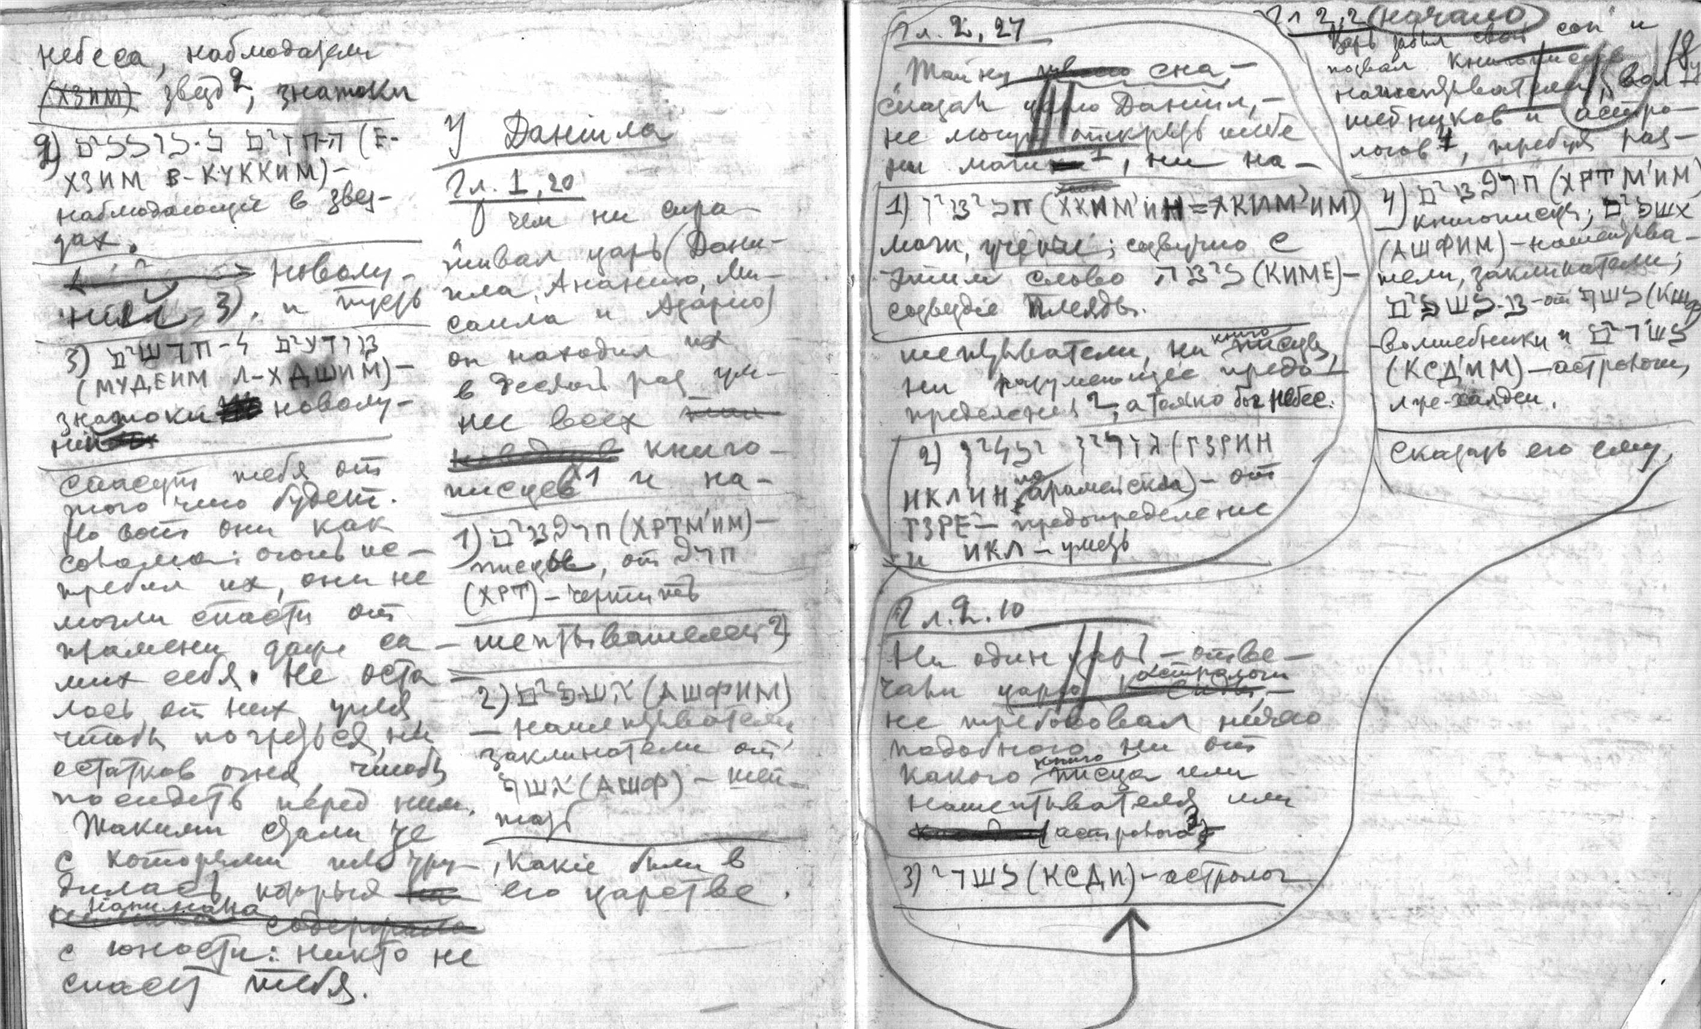 небеса, наблюдатели
(ХЗИМ) звезд 2, знатоки
2) החזים ב-כוככים (Е-
ХЗИМ В-КУККИМ)-
наблюдающие в звез-
дах.
новолу-
ний 3), и пусть
3) מודעים ל-חדשים
(МУДЕИМ Л-ХДШИМ)-
знатоки новолу-
ний
спасут тебя от
того чего будет.
Но вот они как
солома: огонь ис-
требил их, они не
могли спасти от
пламени даже са-
мих себя. Не оста
лось от них угля,
чтобы погреться, ни
остатков огня, чтобы
посидеть перед ним.
Такими стали те
с которыми ты тру-
дилась, которые
с юности: никто не
спасет тебя.
У Даніила
Гл. 1, 20
О чем ни спра-
шивал царь (Дани-
ила, Ананию, Ми-
саила и Азарию)
он находил их
в десять раз ум-
нее всех
книго-
писцев 1 и на-
1) חרטמים (ХРТМ'ИМ)-
писцы, от חרט
(ХРТ) - чертить
шептывателей 2)
2) אשפים (АШФИМ)
- нашептыватели,
заклинатели от
אשף (АШФ) - шеп-
тать
, какие были в
его царстве.
Гл. 2, 27
Тайну сна, -
сказал царю Даніил, -
не могут открыть тебе
ни маги 1, ни на-
1) חכמין (ХКИМ'ИН = ХКИМ'ИМ)
маги, ученые; созвучно с
этим слово כימה (КИМЕ)-
созвездие Плеяды.
шептыватели, ни книгописцы,
ни разумеющие предо-
пределения 2, а только бог небес.
2) גזרין יכלין (ГЗРИН
ИКЛИН по арамейски) - от
ГЗРЕ - предопределение
и ИКЛ - уметь
Гл. 2. 10
Ни один царь - отве-
чали царю астрологи
не требовал ничего
подобного ни от
какого книгописца или
нашептывателя или
(астролога 3)
3) כשדי (КСДИ) - астролог
Гл 2, 2 (начало)
Царь забыл свой сон и
позвал книгописцев
нашептывателей, вол-
шебников и астро-
логов 4, требуя раз-
4) חרטמים (ХРТМ'ИМ)
книгописцы; אשפים
(АШФИМ) - нашептыва-
тели, заклинатели;
מכשפים - от כשף (КШФ)
волшебники и כשדים
(КСД'ИМ) - астрологи,
сказать его ему,